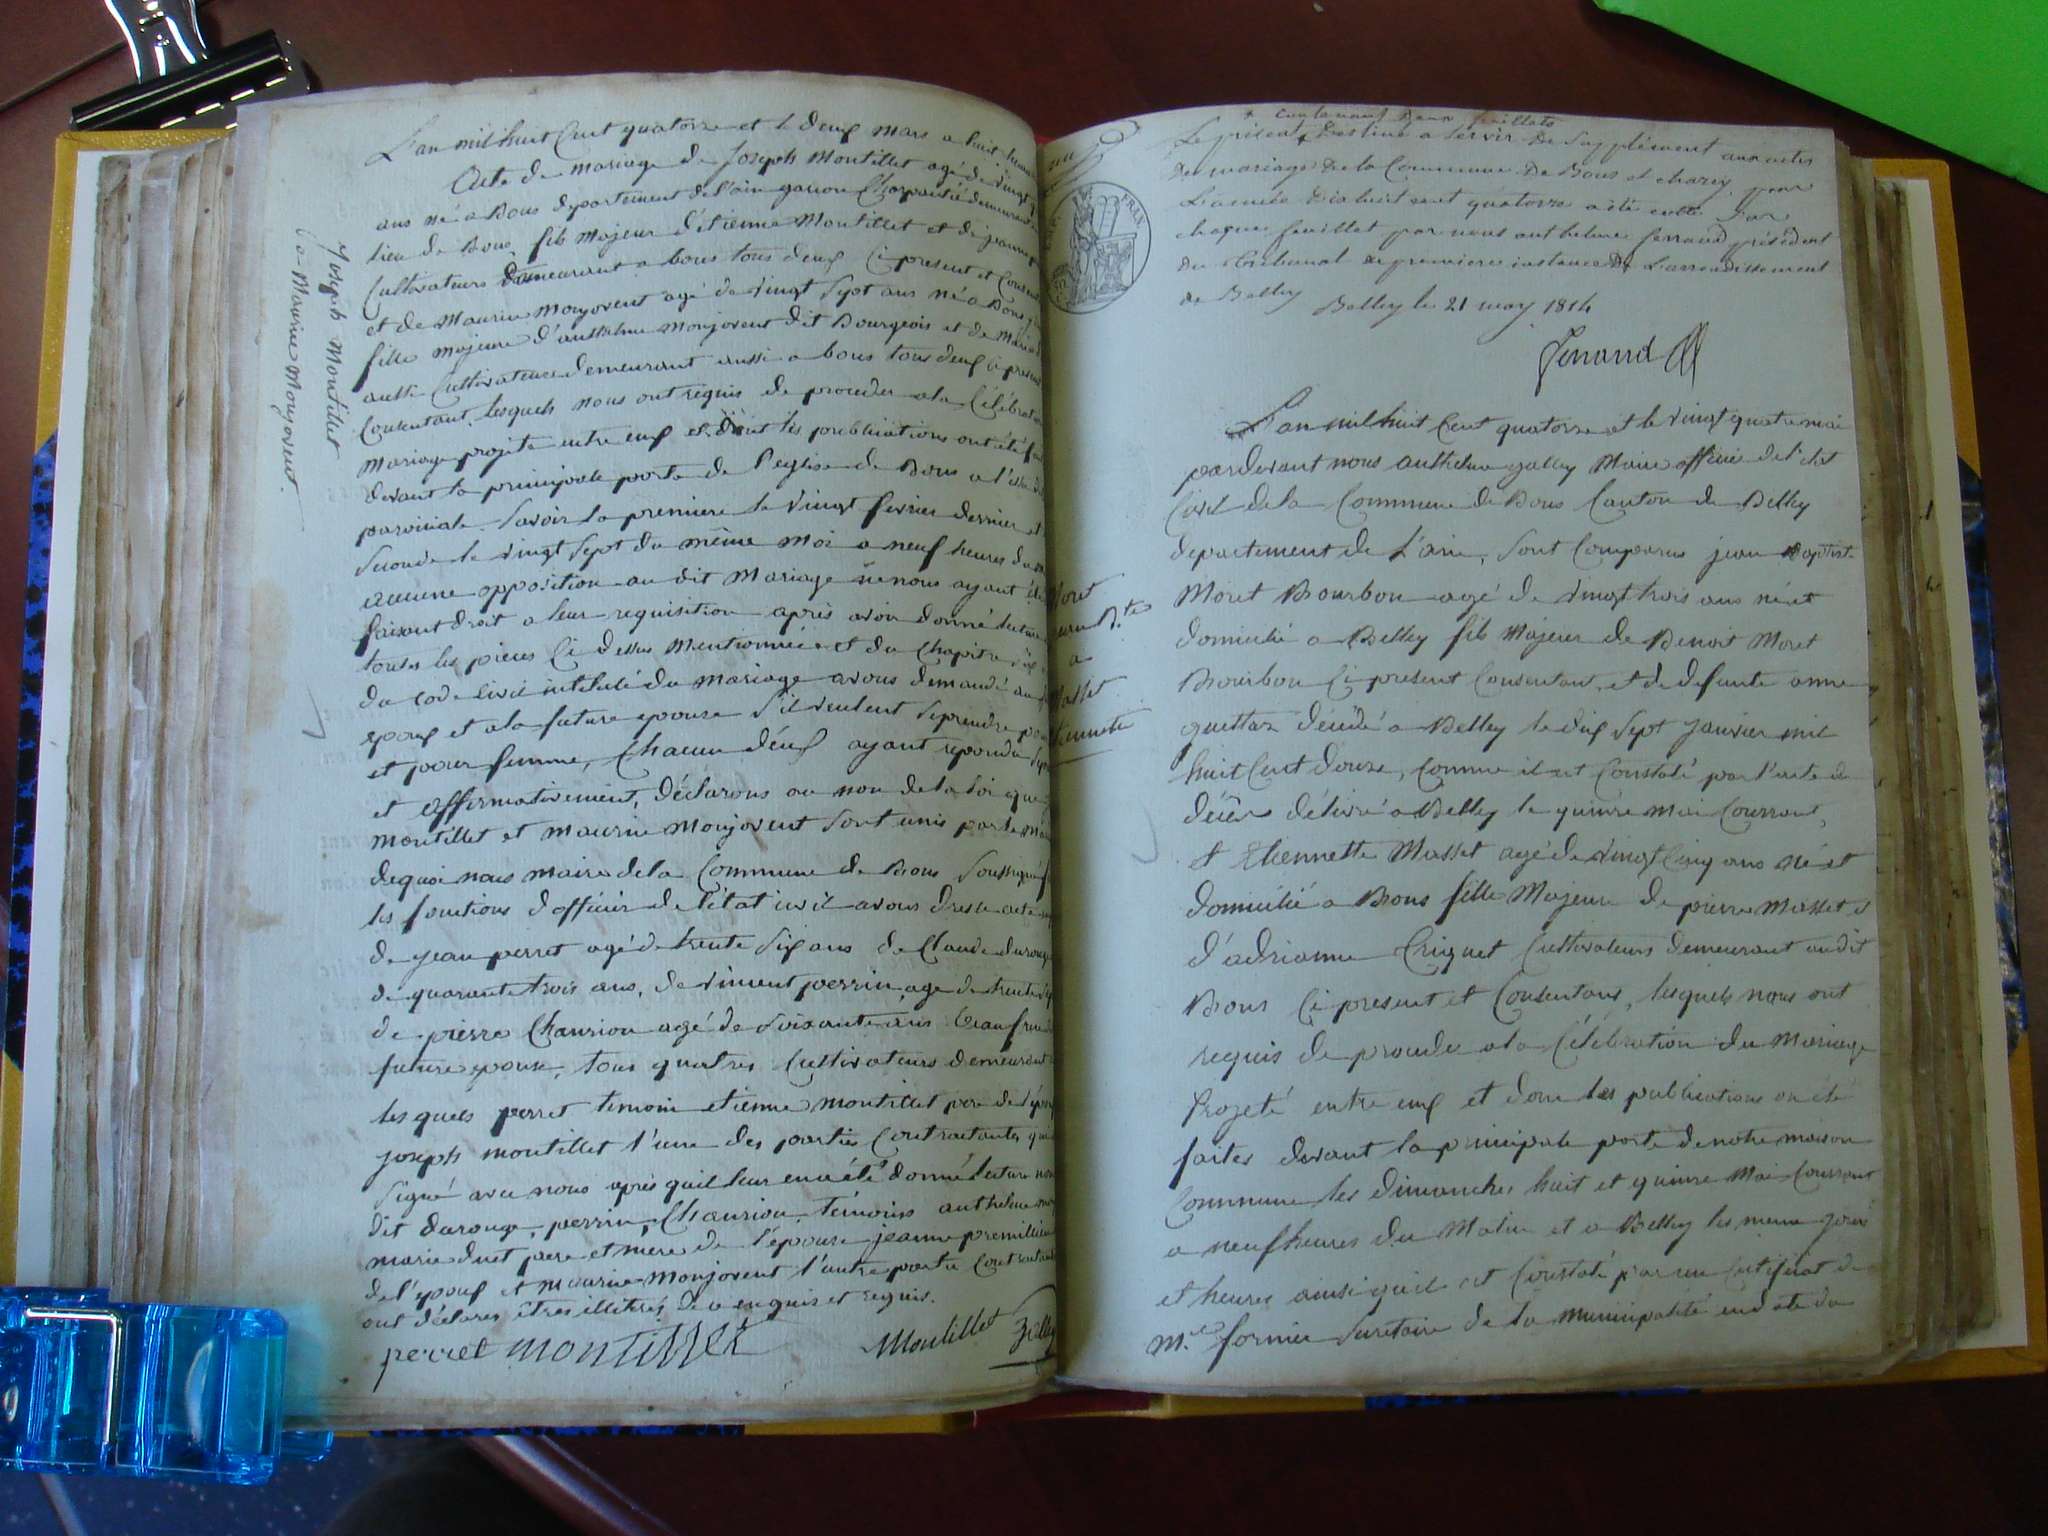 L'an mil huit Cent quatorze et le deux mars a huit heures
Acte de mariage de Joseph Montillet agé de vingt
ans né a Bons departement de l'ain garçon Charpentié demeurant
lieu de Bons, fils majeur d'étienne Montillet et de jeanne
Cultivateurs demeurant a bons tous deux Ci present et Consent
et de Maurise Monjovent agé de vingt Sept ans né a Bons
fille majeure d'anthelme Monjovent dit Bourgeois et de Marie
aussi Cultivateurs demeurant aussi a bons tous deux Ci present
Consentant, lesquels nous ont requis de proceder a la Célébration
Mariage projeté entre eux et dont les publications ont été fai
devant la principale porte de l'eglise de Bons a l'issue
paroissiale. Savoir la premiere le vingt fevrier dernier et
Seconde le vingt Sept du même moi a neuf heures du
aucune opposition au dit Mariage ne nous ayant été
faisant droit a leur requisition après avoir donné lecture
toutes les pieces Ci dessus Mentionnée et du Chapitre Six
du Code Civil intitulé du Mariage avons demandé au
epoux et a la future epouse S'il veulent Se prendre pour
et pour femme, Chacun d'eux ayant repondu Sepa
et affirmativement, déclarons au nom de la loi que
Montillet et Maurise Monjovent Sont unis par le ma
de quoi nous maire de la Commune de Bons Soussigné
les fonctions d'officier de l'état civil avons dressé acte
de jean perret agé de trente Six ans de Claude durouge
de quarante trois ans, de vincent perrin, age de trente
de pierre Chansiou agé de Soixante ans beau frere
future epouse, tous quatres Cultivateurs demeurant
les quels perret temoin etienne Montillet pere de l'époux
joseph Montillet l'une des parties Contractantes qui
Signé avec nous après quil leur en a été donné lecture
dit durouge, perrin, Chansiou, témoins anthelme
marie duet pere et mere de l'épouse jeanne premillieu
de l'époux et Maurise Monjovent l'autre partie Contractante
ont déclarés êtres illitérés de ce enquis et requis.
perret montillet Montillet
Joseph Montillet
a Maurise Monjovent.
+ contenant deux feuillets
Le présent + destiné a servir de Supplément aux actes
de mariage de la Commune de Bons et chazey, pour
L'année dix huit cent quatorze a été cotté Par
chaque feuillet par nous anthelme ferrand président
du Tribunal de premiere instance de L'arrondissement
de Belley Belley le 21 may 1814
ferrand
L'an mil huit Cent quatorze et le vingt quatre mai
pardevant nous anthelme Maire officié de l'etat
Civil de la Commune de Bons Canton de Belley
departement de L'ain, Sont Comparus jean Baptiste
Moret Bourbon agé de vingt trois ans né et
domicilié a Belley fils Majeur de Benoit Moret
Bourbon Ci present Consentant, et de defunte anne
guettaz décédé a Belley le dix Sept janvier mil
huit Cent douze, Comme il est Constaté par l'acte de
décès délivré a Belley le quinze Mai Courrant,
et Etiennette Masset agé de vingt Cinq ans né et
domicilié a Bons fille Majeure de pierre Masset et
d'adrianne Criquet Cultivateurs demeurant audit
Bons Ci present et Consentant, lesquels nous ont
requis de proceder a la Célébration du Mariage
Projeté entre eux et dont les publications on été
faites devant la principale porte de notre maison
Commune les dimanches huit et quinze Mai Courrant
a neuf heures du Matin et a Belley les meme jours
et heures ainsi quil est Constaté par un Certificat de
Mr. fornier Secretaire de la municipalité en date du
Moret
a
Masset
FRAN